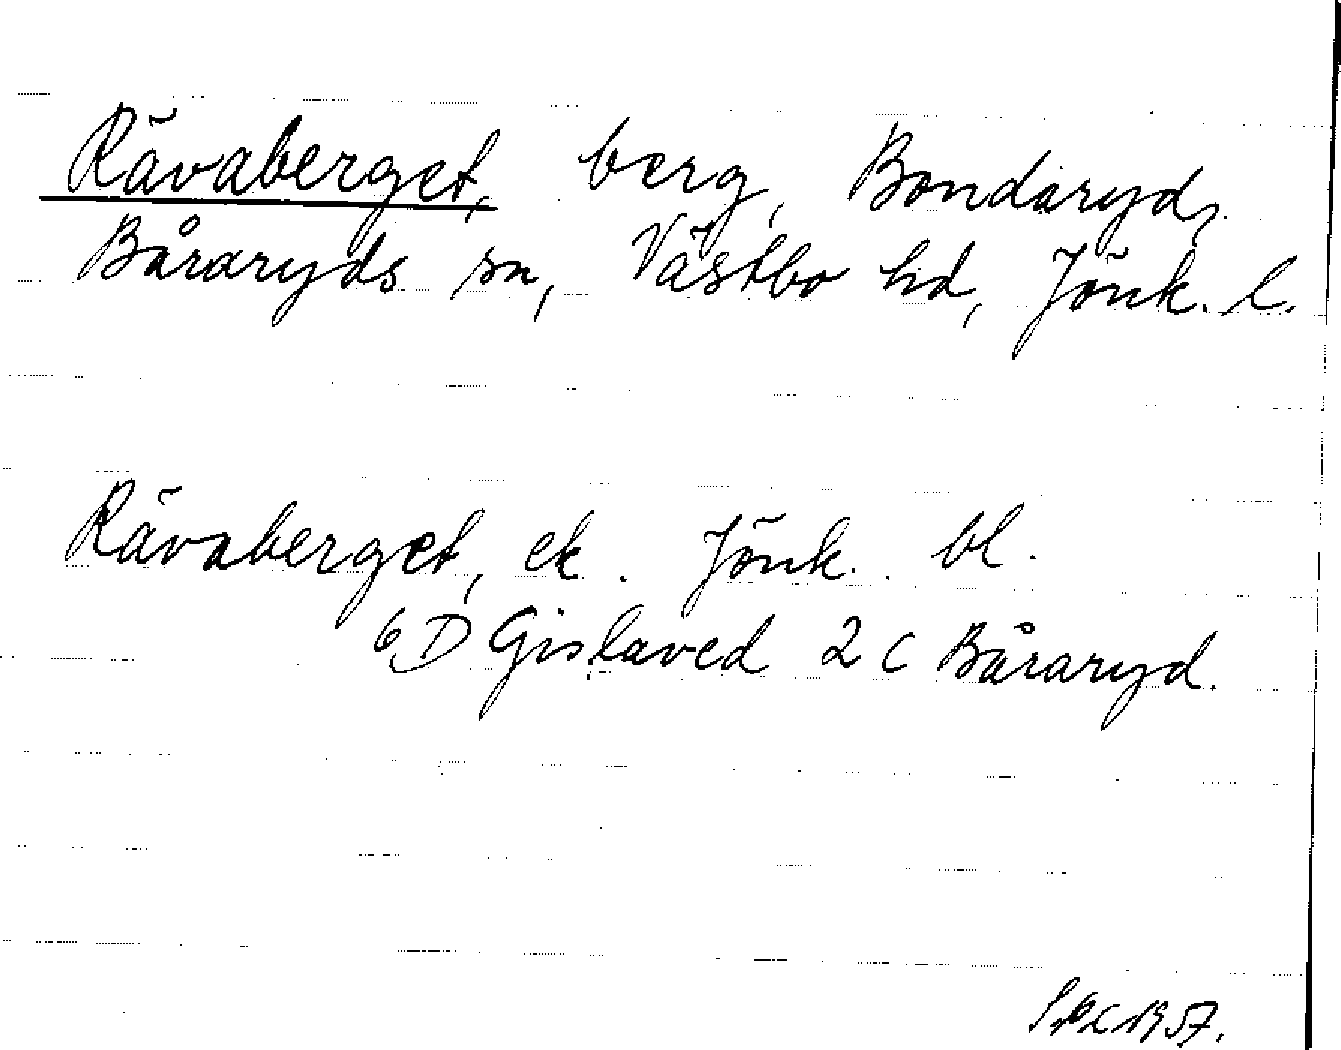 Rävaberget, berg, Bondaryd,
Båraryds sn, Västbo hd, Jönk. l.
Rävaberget, ek. Jönk. bl.
6D Gislaved 2 c Båraryd.
1957.